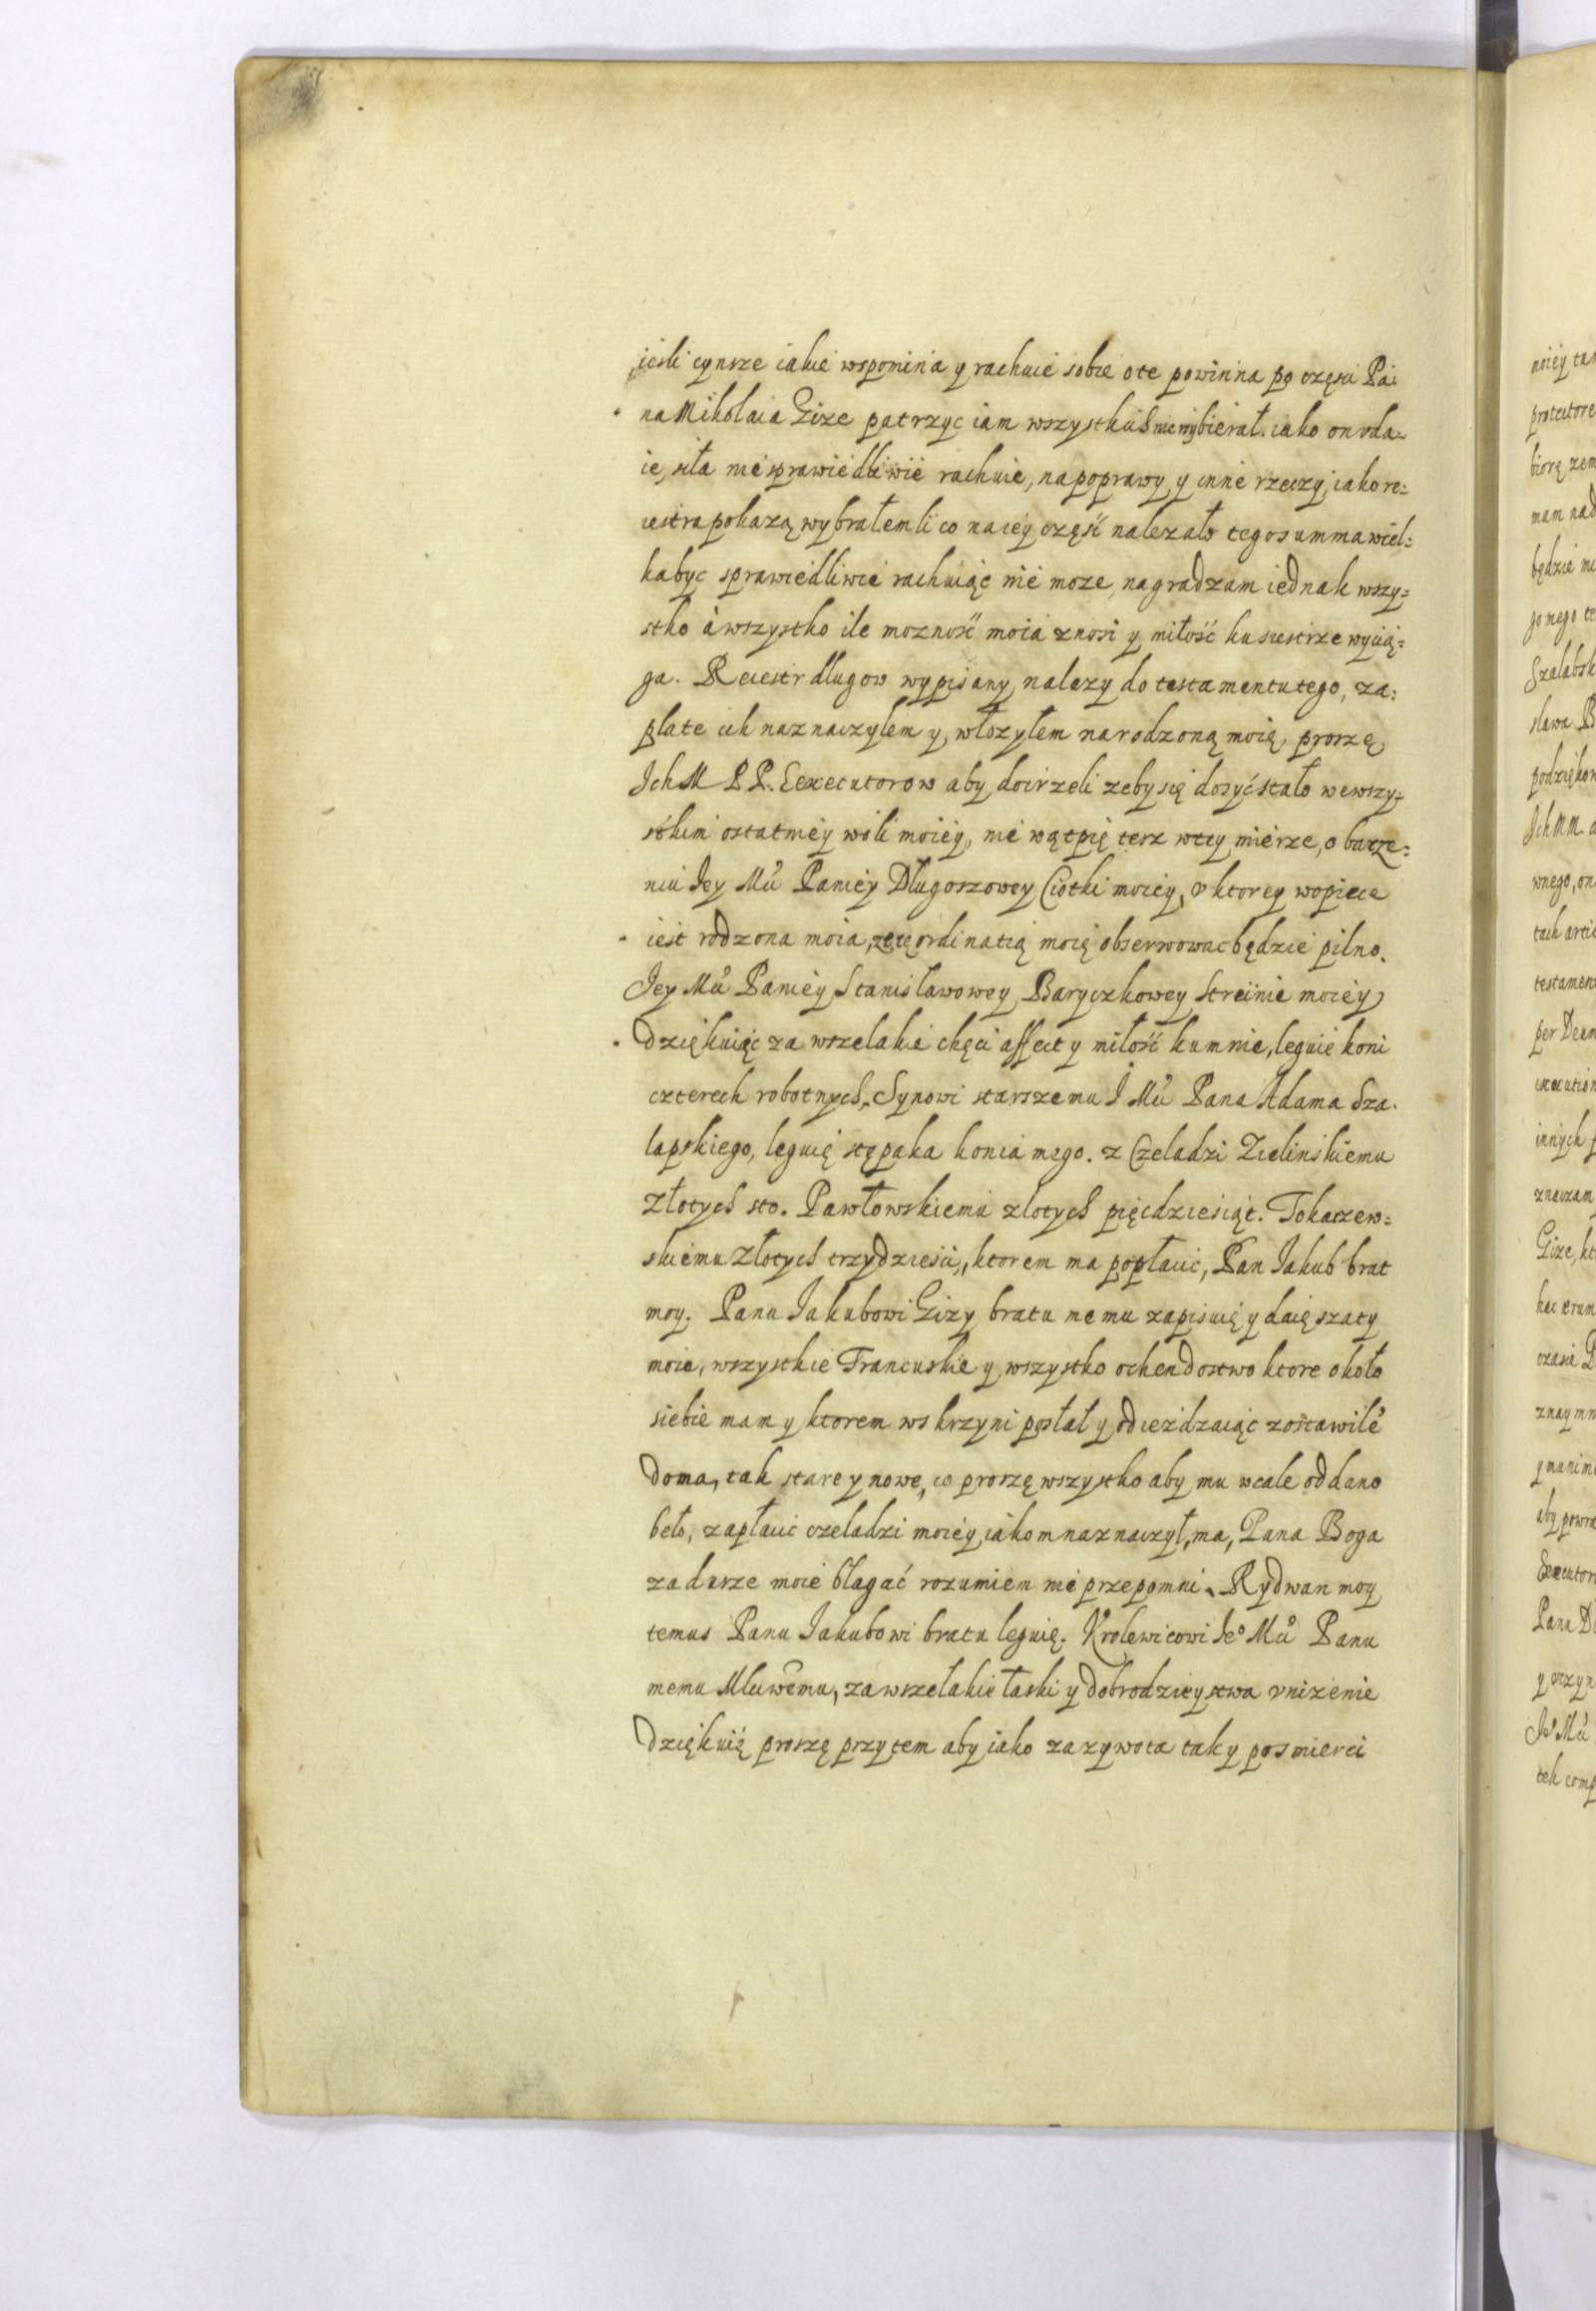 ieśli cynsze iakie wspomina y rachuie sobie o te powinna po częsci Pa:
na Mikolaia Gize patrzyc iam wszystkich nie wybierał. iako on vda:
ie, siła niesprawiedliwie rachuie, na poprawy y inne rzeczy, iako re:
iestra pokazą wybrałemli co na iey część nalezało tego summa wiel:
ka byc sprawiedliwie rachuiąc nie moze, nagradzam iednak wszy:
stko à wszystko ile mozność moia znosi y miłość ku siestrze wycią:
ga. Reiestr dlugow wypisany nalezy do testamentu tego, za:
plate ich naznaczylem y włozyłem na rodzoną moię, proszę
Ich M P P. Eexecutorow aby doirzeli zeby się dosyć stało we wszy:
stkim ostatniey woli moiey, nie wątpię tesz w tey mierze, o bacze:
niu Iey Mći Paniey Długoszowey Ciotki moiey, v ktorey w opiece
iest rodzona moia, ze tę ordinatią moię obserwowac będzie pilno.
Iey Mći Paniey Stanisławowey Baryczkowey Streinie moiey
dziękuiąc za wszelakie chęci affect y miłość ku mnie, leguię koni
czterech robotnych. Synowi starszemu I Mći Pana Adama Sza.
lapskiego, leguię stępaka konia mego. z Czeladzi Zielinskiemu
złotych sto. Pawłowskiemu złotych pięcdziesiąt. Tokarzew:
skiemu złotych trzydziesci, ktorem ma popłacic, Pan Iakub brat
moy. Panu Iakubowi Gizy bratu memu zapisuię y daię szaty
moie, wszystkie Francuskie y wszystko ochendostwo ktore około
siebie mam y ktorem w skrzyni posłał y odiezdzaiąc zostawilẽ
doma, tak stare y nowe, co proszę wszystko aby mu wcale oddano
beło, zapłacic czeladzi moiey iakom naznaczył, ma, Pana Boga
za dusze moie błagać rozumiem nie przepomni. Rydwan moy
temus Panu Iakubowi bratu leguię. Krolewicowi Ieº Mći Panu
memu Mciwemu, za wszelakie łaski y dobrodzieystwa vnizenie
dziękuię proszę przytem aby iako za zywota tak y po smierci